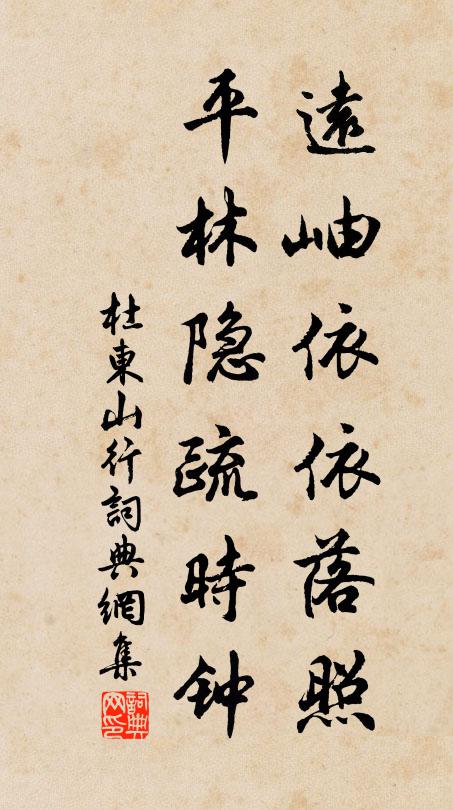 遠岫依依落照
平林隐疏時钟
杜東山行詞典網集
詞典网印